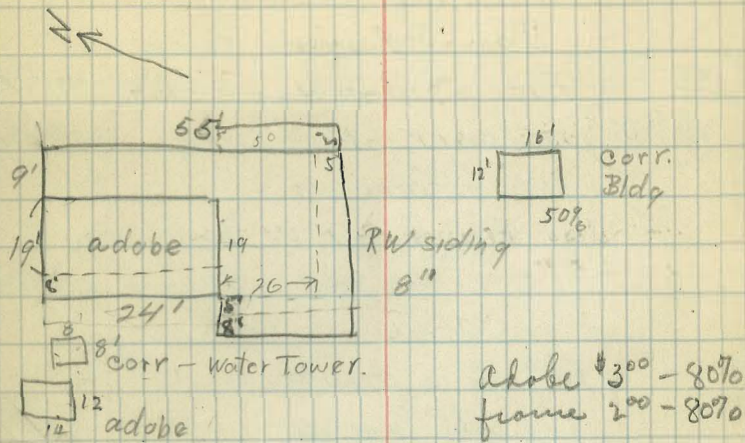 N
55'
50
3
5
9'
19'
adobe
19
8'
26
24'
5'
8'
RW siding
8"
16'
12'
corr.
Bldg
50%
8'
8'
corr - Water Tower.
12
14
adobe
adobe $3 00 - 80%
frame 2 00 - 80%